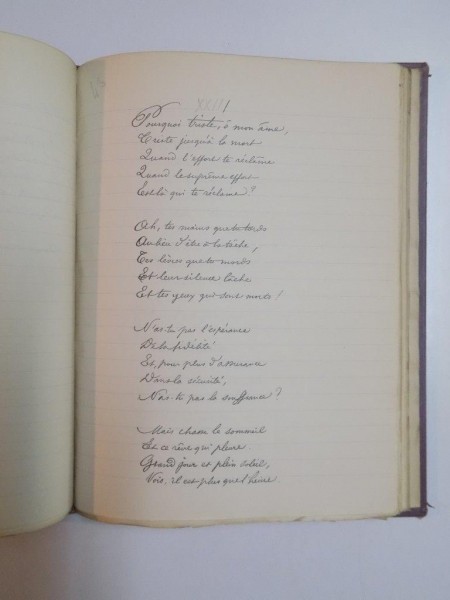 XXII
Pourquoi triste, ô mon âme,
Triste jusqu'à la mort
Quand l'effort te réclame
Quand le suprême effort
Est là qui te réclame ?
Ah, tes mains que tu tords
Au lieu d'être à la tâche,
Tes lèvres que tu mords
Et leur silence lâche
Et tes yeux qui sont morts !
N'as-tu pas l'espérance
De la fidélité
Et, pour plus d'assurance
Dans la sécurité,
N'as-tu pas la souffrance ?
Mais chasse le sommeil
Et ce rêve qui pleure
Grand jour et plein soleil,
Vois, il est plus que l'heure